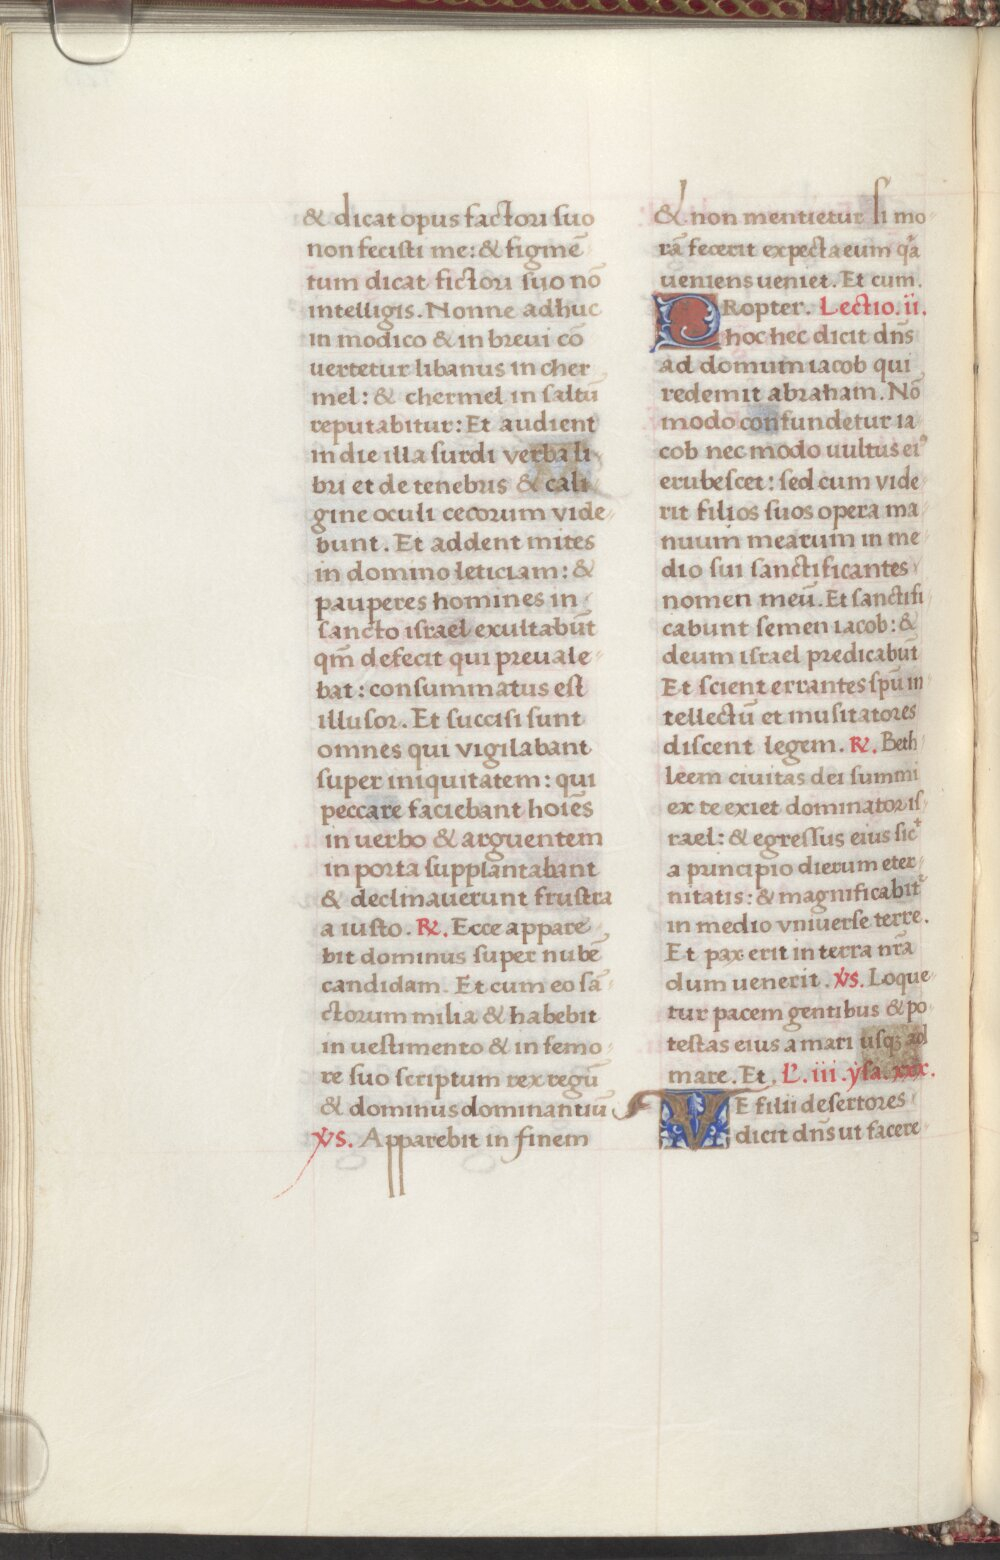 & dicat opus factori suo
non fecisti me: & figmē
tum dicat fictori suo nō
intelligis. Nonne adhuc
in modico & in breui cō
uertetur libanus in cher
mel: & chermel in saltū
reputabitur: Et audient
in die illa surdi verba li
bri et de tenebris & cali
gine oculi cecorum vide
bunt. Et addent mites
in domino leticiam: &
pauperes homines in
sancto israel exultabūt
qm̄ defecit qui preuale
bat: consummatus est
illusor. Et succisi sunt
omnes qui vigilabant
super iniquitatem: qui
peccare faciebant hoīes
in uerbo & arguentem
in porta supplantabant
& declinauerunt frustra
a iusto. ℟. Ecce appare
bit dominus super nubē
candidam. Et cum eo sā
ctorum milia & habebit
in uestimento & in femo
re suo scriptum rex regū
& dominus dominantiū
V̇s. Apparebit in finem
& non mentietur si mo
rā fecerit expecta eum qa
ueniens ueniet. Et cum.
PRopter. Lectio. ii.
hoc hec dicit dn̄s
ad domum iacob qui
redemit abraham. Nō
modo confundetur ia
cob nec modo uultus ei⁹
erubescet: sed cum vide
rit filios suos opera ma
nuum mearum in me
dio sui sanctificantes
nomen meū. Et sanctifi
cabunt semen iacob: &
deum israel predicabūt
Et scient errantes spū in
tellectū et musitatores
discent legem. ℟. Beth
leem ciuitas dei summi
ex te exiet dominator is
rael: & egressus eius sic̄
a principio dierum eter
nitatis: & magnificabit̄
in medio vniuerse terre.
Et pax erit in terra nr̄a
dum uenerit. V̇s. Loque
tur pacem gentibus & po
testas eius a mari usqꝫ ad
mare. Et. L'. iii. ysa. xxx.
VE filii desertores
dicit dn̄s ut facere